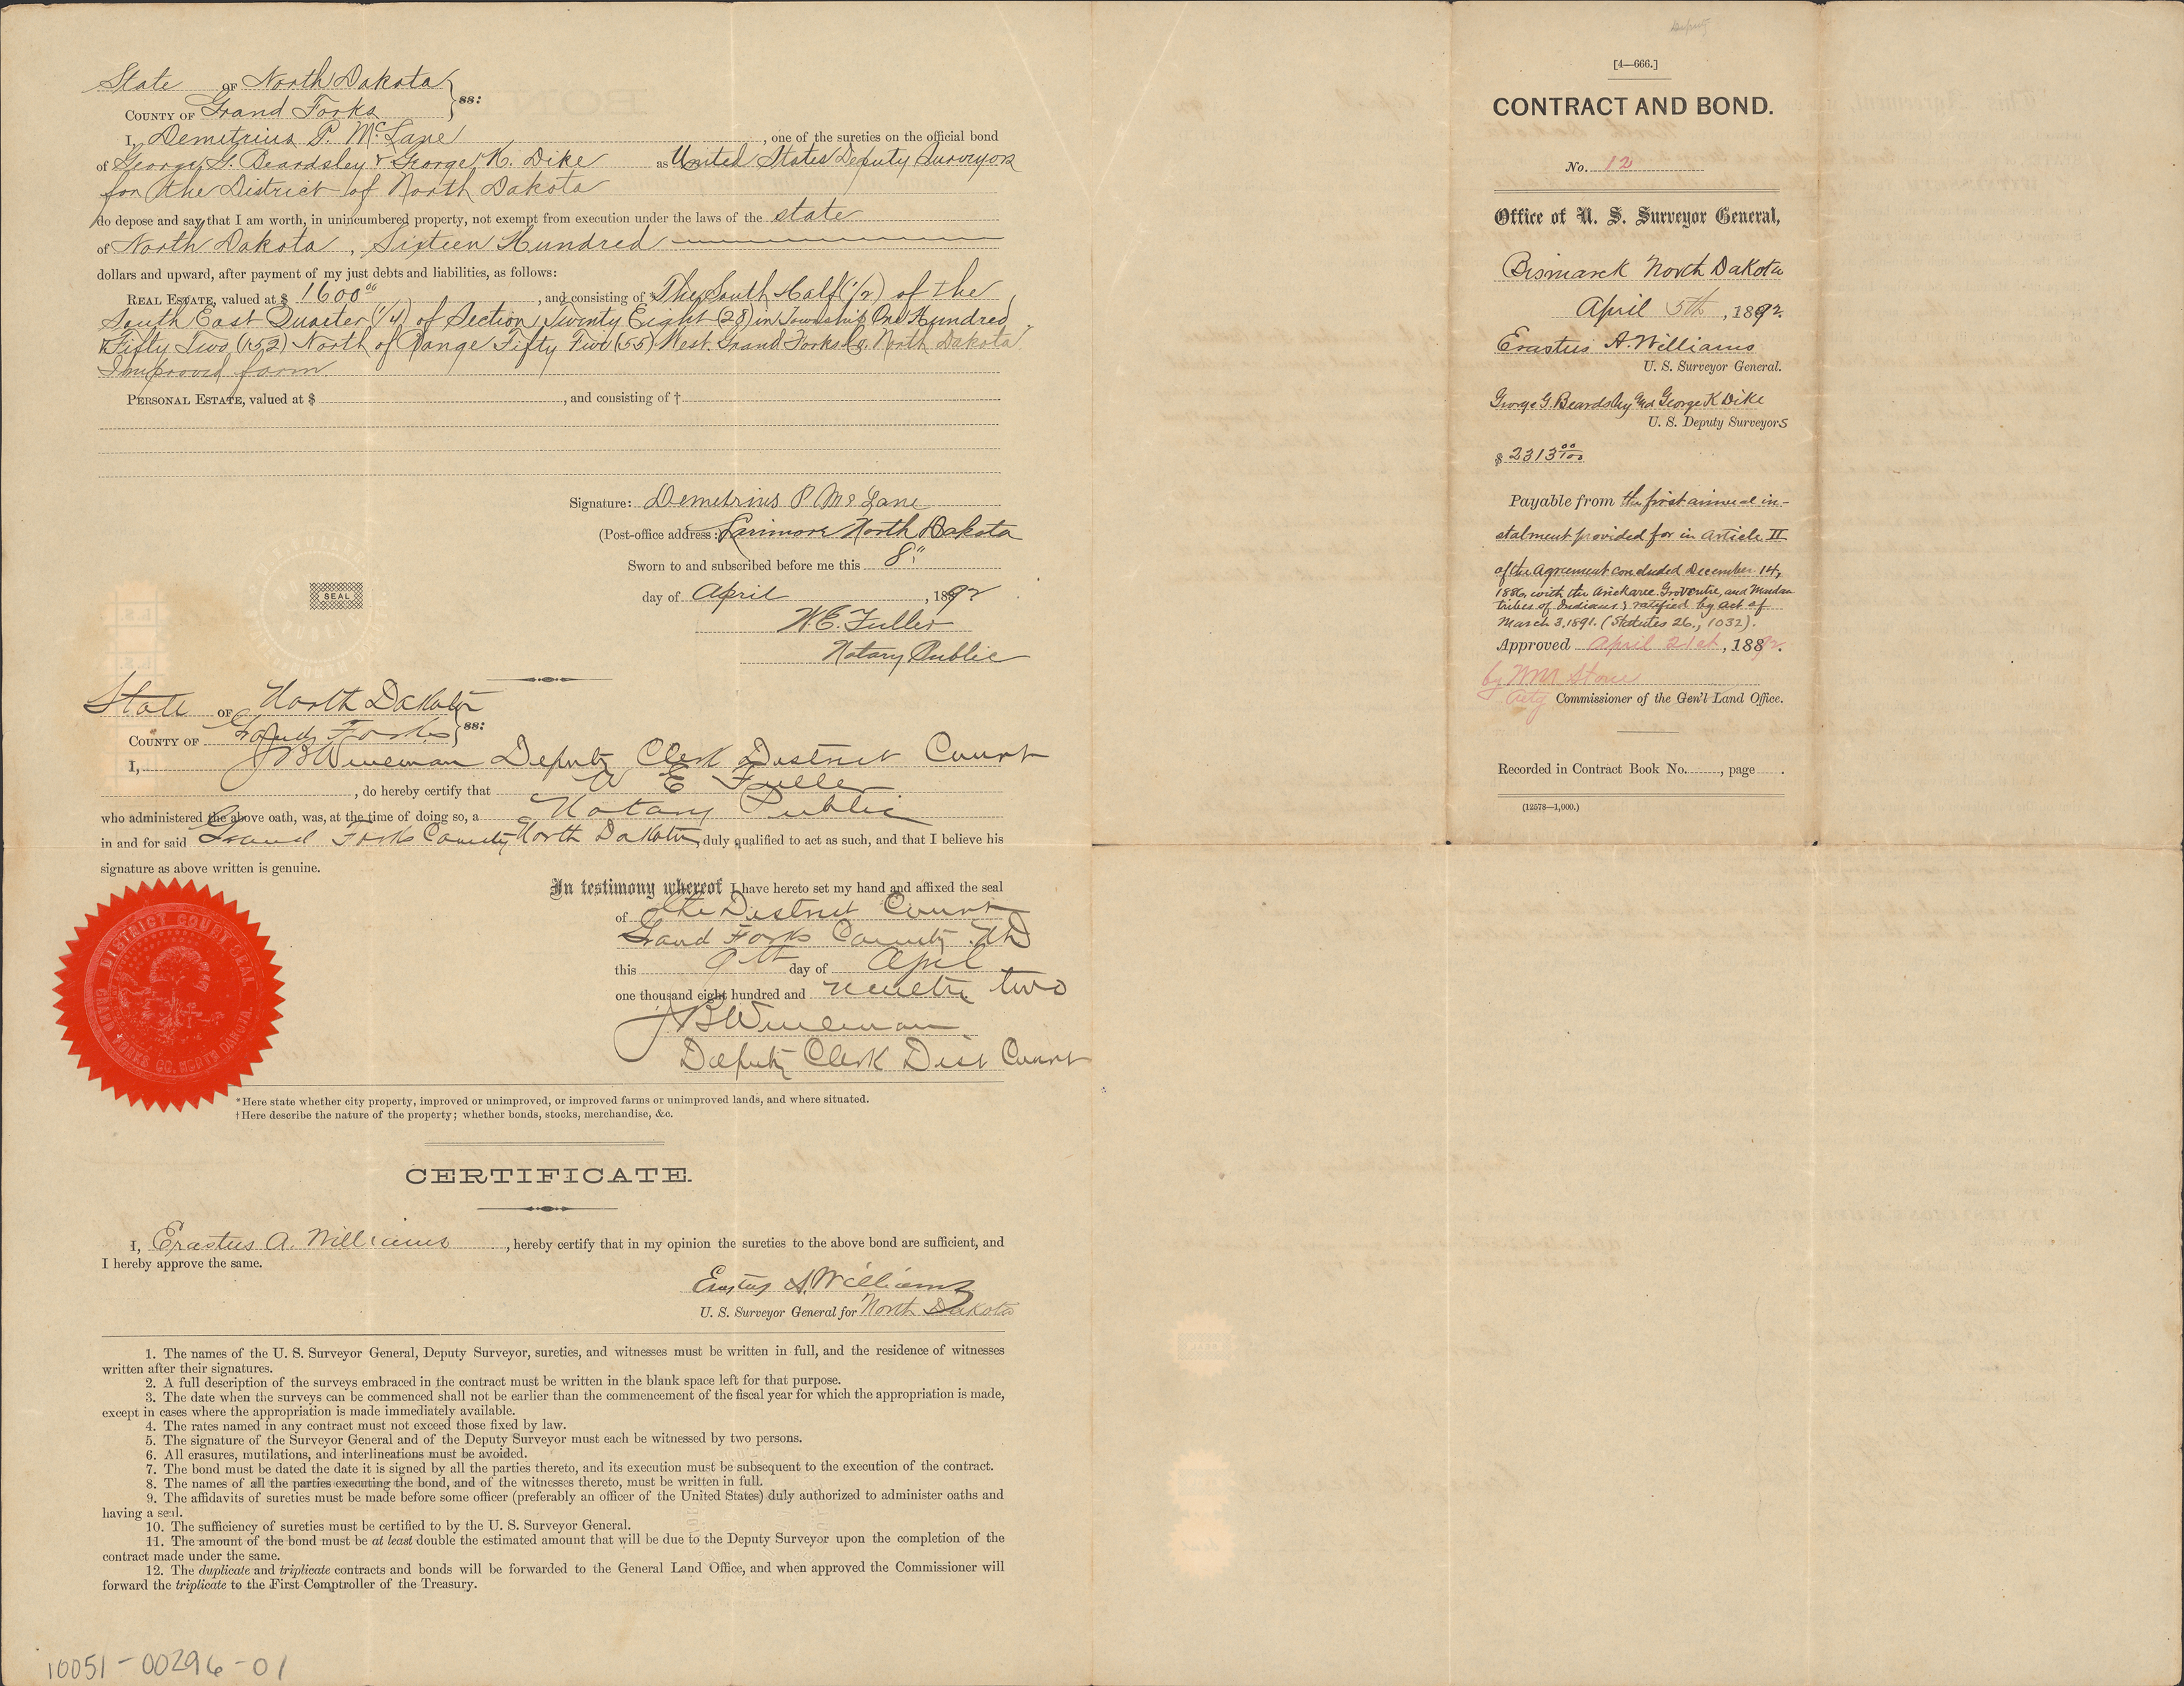 State OF North Dakota
COUNTY OF Grand Forks } ss:
I, Demetrius P. McLane, one of the sureties on the official bond
of George G. Beardsley & George K. Dike as United States Deputy Surveyors
for the District of North Dakota
do depose and say that I am worth, in unincumbered property, not exempt from execution under the laws of the state
of North Dakota, Sixteen Hundred
dollars and upward, after payment of my just debts and liabilities, as follows:
REAL ESTATE, valued at $ 1600 00, and consisting of * The South Half (1/2) of the
South East Quarter (1/4) of Section Twenty Eight (28) in Township One Hundred
& Fifty Two (152) North of Range Fifty Five (55) West. Grand Forks Co. North Dakota
Improved farm
PERSONAL ESTATE, valued at $ , and consisting of †
Signature: Demetrius P McLane
(Post-office address: Larimore North Dakota
SEAL
Sworn to and subscribed before me this 8"
day of April, 1892
W.E. Fuller
Notary Public
State OF North Dakota
COUNTY OF Grand Forks } ss:
I, J B Wineman Deputy Clerk District Court
, do hereby certify that W E Fuller
who administered the above oath, was, at the time of doing so, a Notary Public
in and for said Grand Forks County North Dakota duly qualified to act as such, and that I believe his
signature as above written is genuine.
In testimony whereof I have hereto set my hand and affixed the seal
of the District Court
Grand Forks County ND
this 9th day of April
one thousand eight hundred and ninety two
J B Wineman
Deputy Clerk Dist Court
DISTRICT COURT SEAL
GRAND FORKS CO. NORTH DAKOTA.
* Here state whether city property, improved or unimproved, or improved farms or unimproved lands, and where situated.
† Here describe the nature of the property; whether bonds, stocks, merchandise, &c.
CERTIFICATE.
I, Erastus A. Williams, hereby certify that in my opinion the sureties to the above bond are sufficient, and
I hereby approve the same.
Erastus A. Williams
U. S. Surveyor General for North Dakota
1. The names of the U. S. Surveyor General, Deputy Surveyor, sureties, and witnesses must be written in full, and the residence of witnesses
written after their signatures.
2. A full description of the surveys embraced in the contract must be written in the blank space left for that purpose.
3. The date when the surveys can be commenced shall not be earlier than the commencement of the fiscal year for which the appropriation is made,
except in cases where the appropriation is made immediately available.
4. The rates named in any contract must not exceed those fixed by law.
5. The signature of the Surveyor General and of the Deputy Surveyor must each be witnessed by two persons.
6. All erasures, mutilations, and interlineations must be avoided.
7. The bond must be dated the date it is signed by all the parties thereto, and its execution must be subsequent to the execution of the contract.
8. The names of all the parties executing the bond, and of the witnesses thereto, must be written in full.
9. The affidavits of sureties must be made before some officer (preferably an officer of the United States) duly authorized to administer oaths and
having a seal.
10. The sufficiency of sureties must be certified to by the U. S. Surveyor General.
11. The amount of the bond must be at least double the estimated amount that will be due to the Deputy Surveyor upon the completion of the
contract made under the same.
12. The duplicate and triplicate contracts and bonds will be forwarded to the General Land Office, and when approved the Commissioner will
forward the triplicate to the First Comptroller of the Treasury.
10051-00296-01
[4—666.]
CONTRACT AND BOND.
No. 12
Office of U. S. Surveyor General,
Bismarck North Dakota
April 5th, 1892.
Erastus A. Williams
U. S. Surveyor General.
George G. Beardsley and George K Dike
U. S. Deputy Surveyors
$ 2313 00/100
Payable from the first annual in-
stalment provided for in Article II
of the Agreement concluded December 14,
1886, with the Arickaree Gros Ventre, and Mandan
tribes of Indians, ratified by act of
March 3, 1891. (Statutes 26., 1032).
Approved April 21st, 1892.
by W M Stone
Actg Commissioner of the Gen'l Land Office.
Recorded in Contract Book No. , page .
(12578—1,000.)